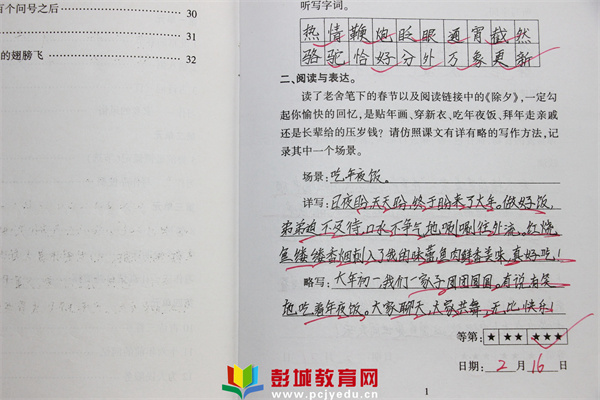 百个问号之后 30
31
的翅膀飞 32
听写字词。
热情鞭炮眨眼通宵截然
骆驼恰好分外万象更新
二、阅读与表达。
读了老舍笔下的春节以及阅读链接中的《除夕》，一定勾
起你愉快的回忆，是贴年画、穿新衣、吃年夜饭、拜年走亲戚
还是长辈给的压岁钱？请仿照课文有详有略的写作方法，记
录其中一个场景。
场景：吃年夜饭。
详写：日夜盼，天天盼，终于盼来了大年。做好饭，
弟弟迫不及待，口水不争气地唰唰往外流。红烧
鱼缕缕香烟刺入了我的味蕾，鱼肉鲜香美味，真好吃！
略写：大年初一，我们一家子团团圆圆。有说有笑
地吃着年夜饭。大家聊天，大家共舞，无比快乐！
等第：★ ★★ ★★★
日期：2月16日
1
彭城教育网
www.pcjyedu.cn